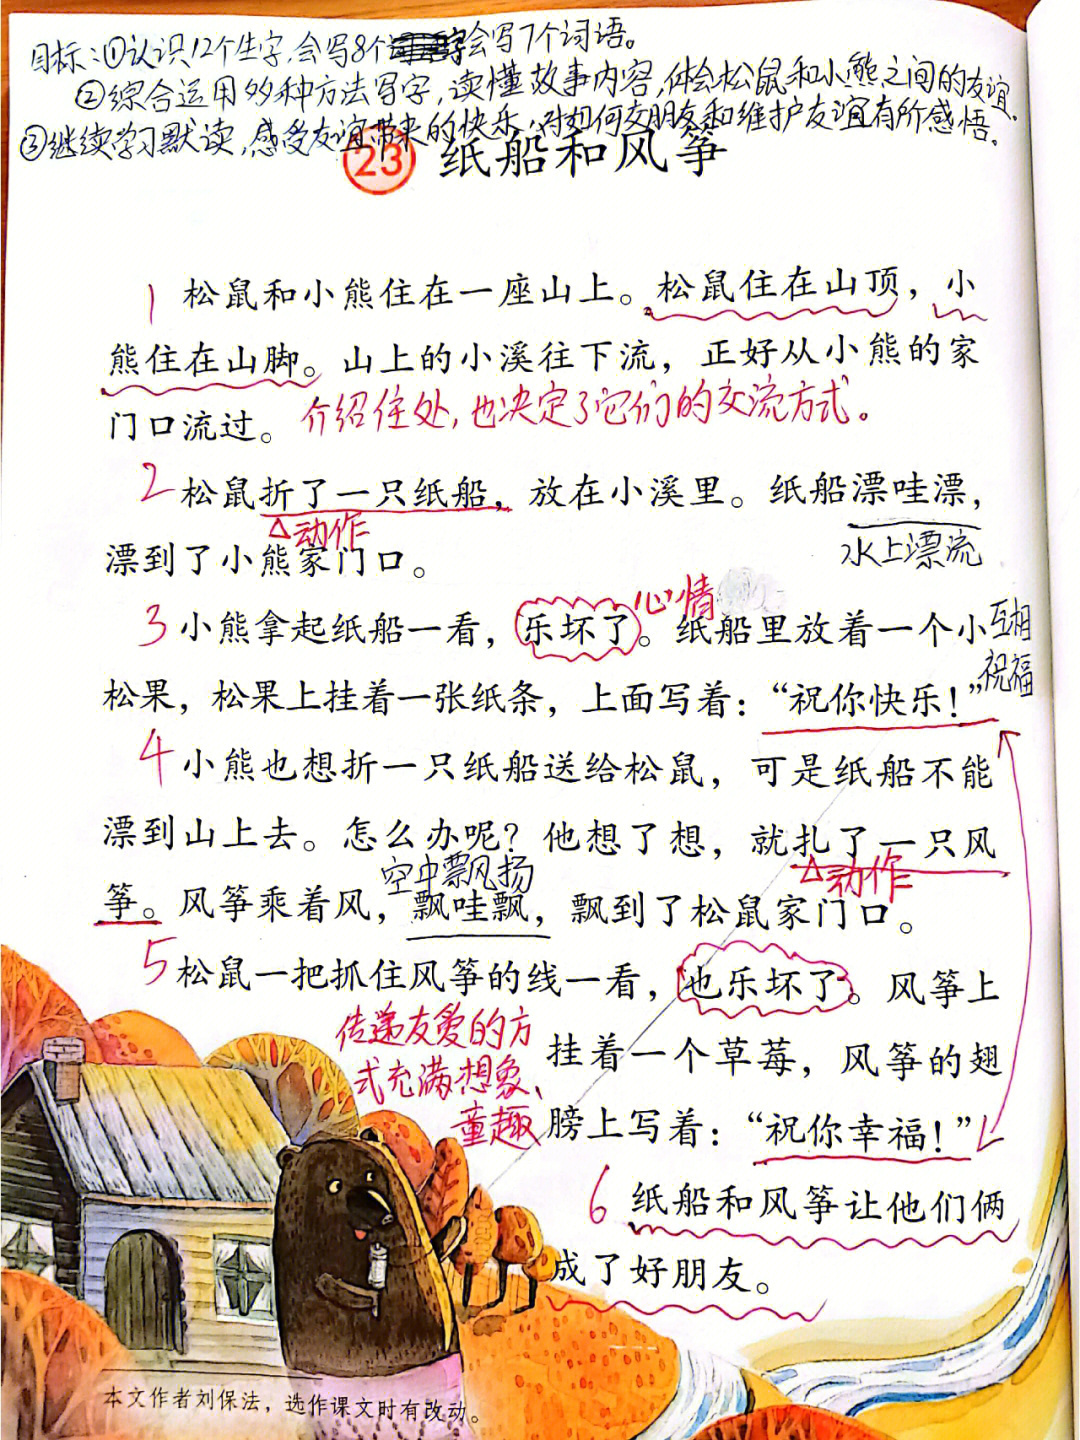 目标:①认识12个生字,会写8个字会写7个词语。
②综合运用多种方法写字,读懂故事内容,体会松鼠和小熊之间的友谊.
③继续学习默读,感受友谊带来的快乐,对如何交朋友和维护友谊有所感悟。
23 纸船和风筝
1 松鼠和小熊住在一座山上。松鼠住在山顶,小
熊住在山脚。山上的小溪往下流,正好从小熊的家
门口流过。介绍住处,也决定了它们的交流方式。
2 松鼠折了一只纸船,放在小溪里。纸船漂哇漂,
动作
水上漂流
漂到了小熊家门口。
心情
3 小熊拿起纸船一看,乐坏了。纸船里放着一个小
互相
祝福
松果,松果上挂着一张纸条,上面写着:“祝你快乐!”
4 小熊也想折一只纸船送给松鼠,可是纸船不能
漂到山上去。怎么办呢?他想了想,就扎了一只风
空中飘扬
动作
筝。风筝乘着风,飘哇飘,飘到了松鼠家门口。
5 松鼠一把抓住风筝的线一看,也乐坏了。风筝上
传递友爱的方
挂着一个草莓,风筝的翅
式充满想象、
童趣
膀上写着:“祝你幸福!”
6 纸船和风筝让他们俩
成了好朋友。
本文作者刘保法,选作课文时有改动。